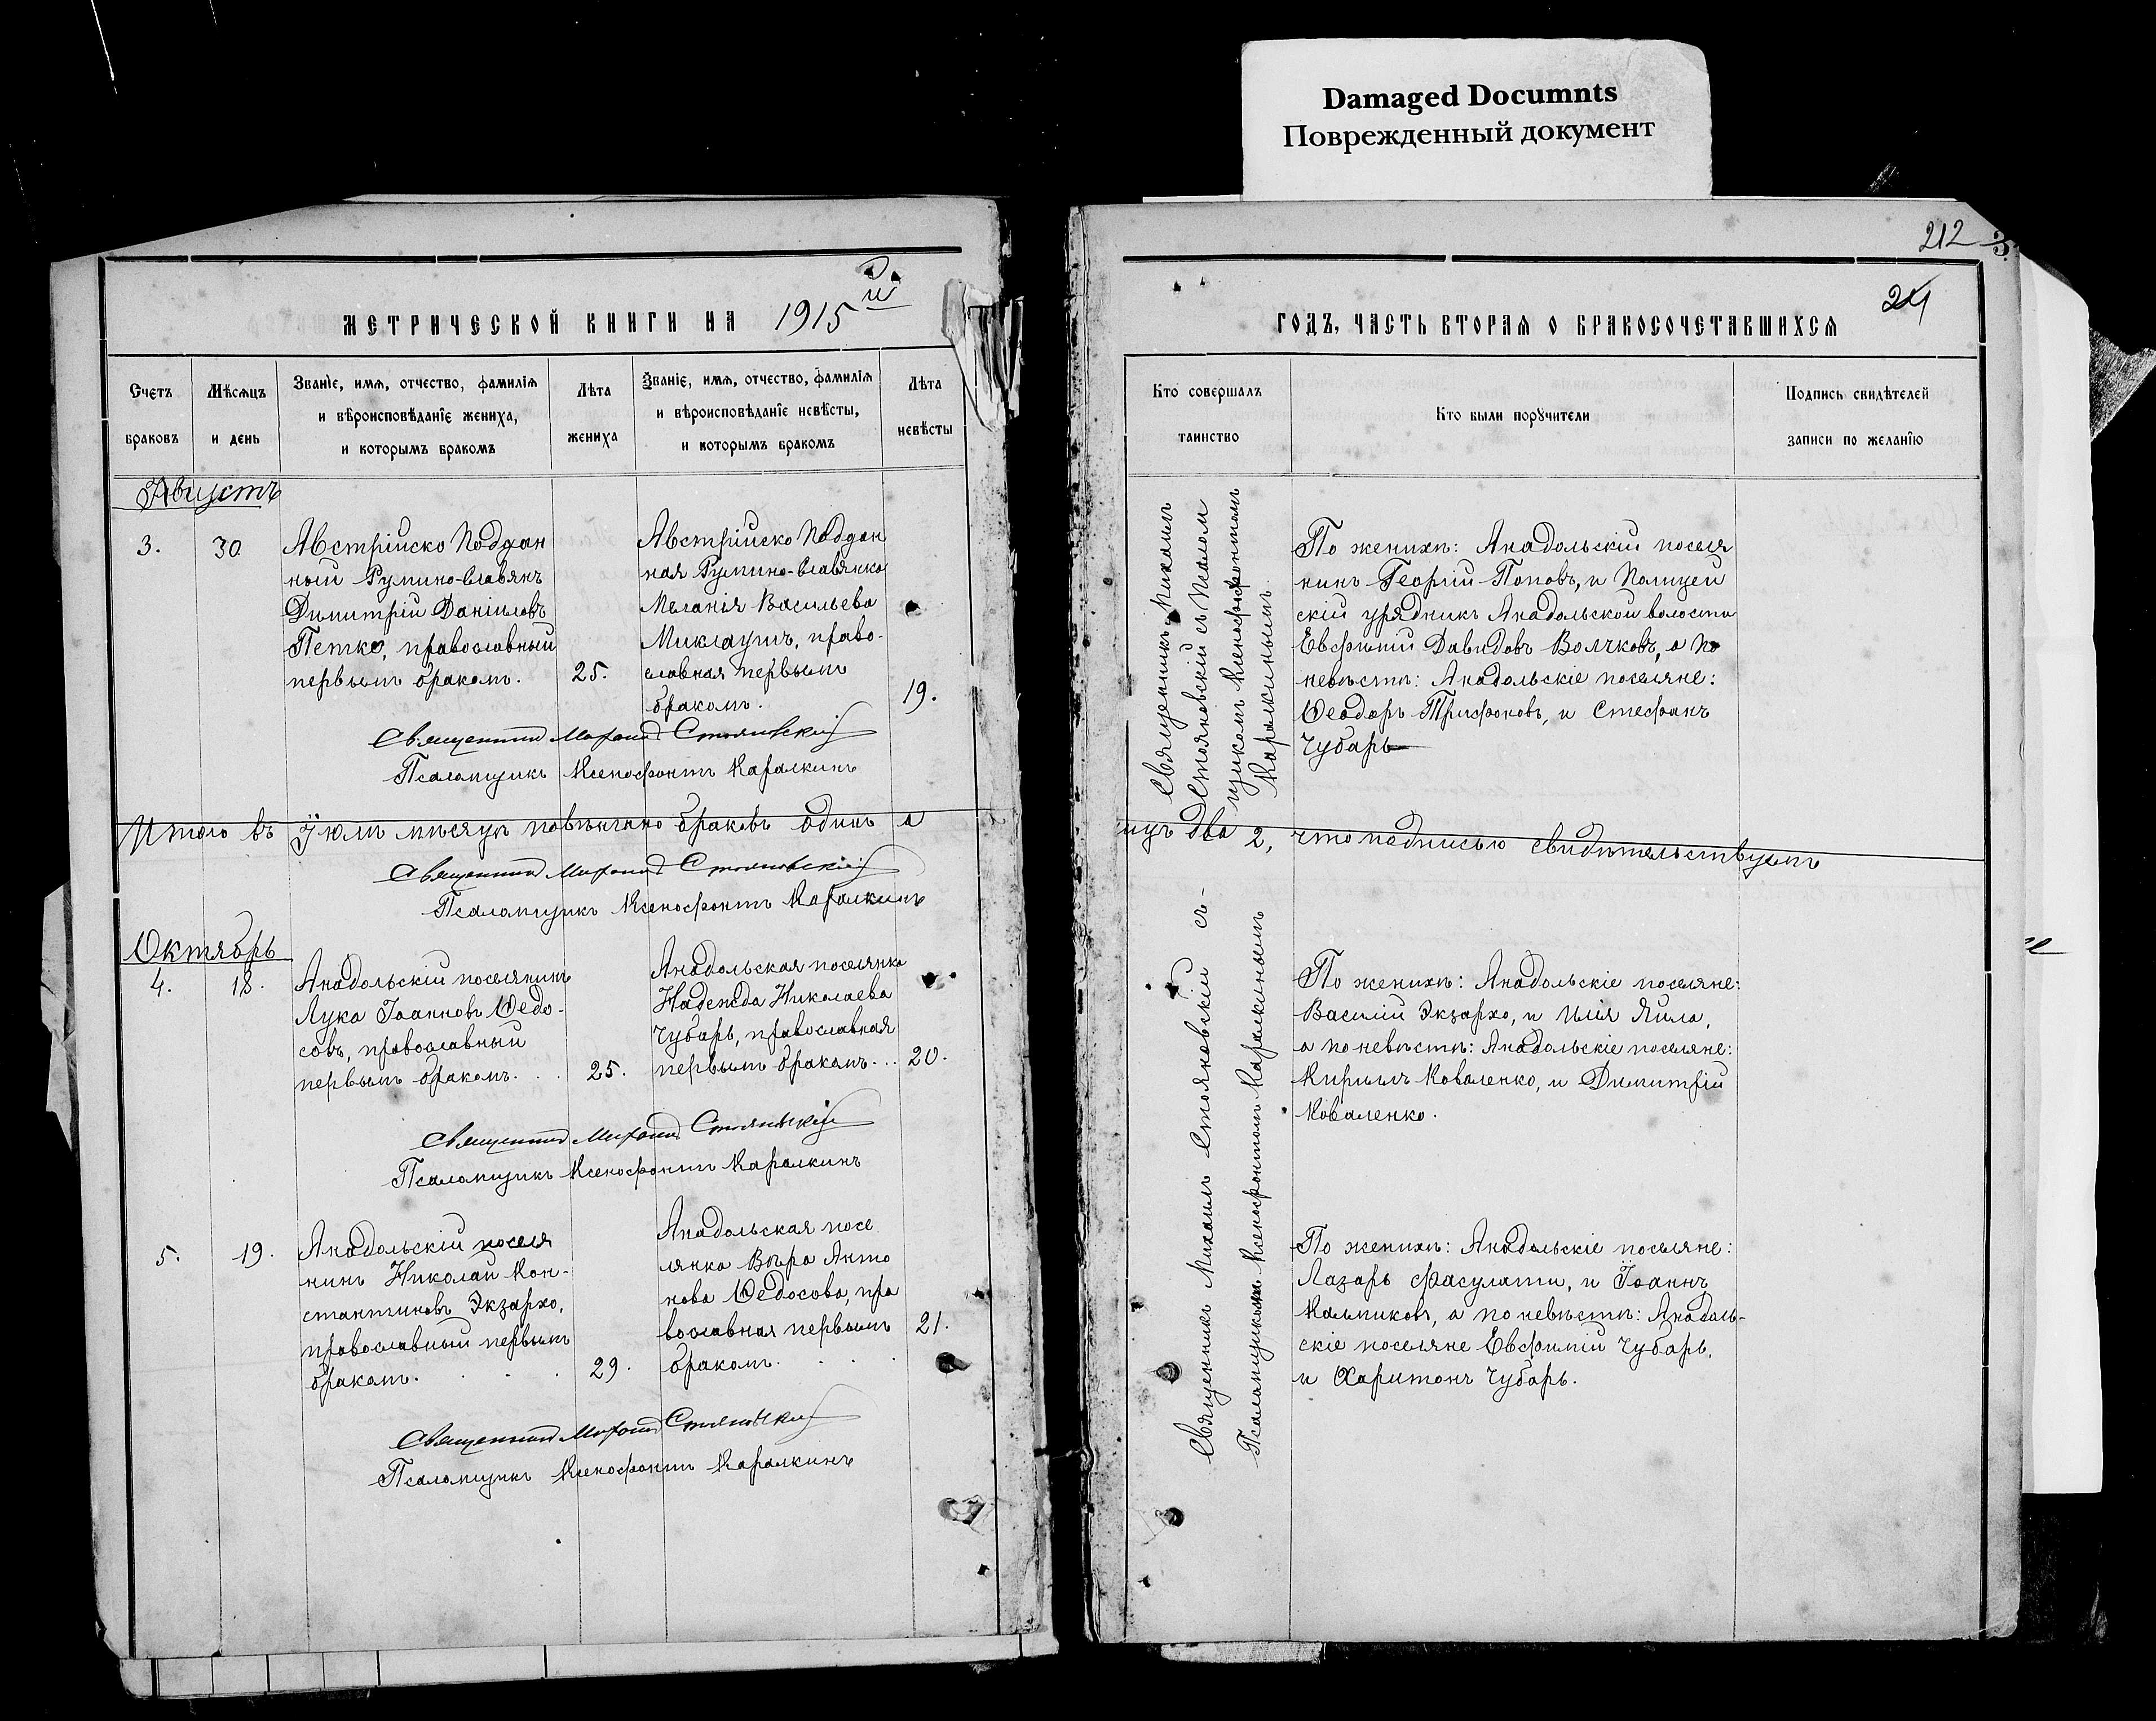 Damaged Documnts
Поврежденный документ
212
24
МЕТРИЧЕСКОЙ КНИГИ НА 1915й
ГОДЪ, ЧАСТЬ ВТОРАЯ О БРАКОСОЧЕТАВШИХСЯ
Счетъ браковъ
Мѣсяцъ и день
Званіе, имя, отчество, фамилія
и вѣроисповѣданіе жениха,
и которымъ бракомъ
Лѣта жениха
Званіе, имя, отчество, фамилія
и вѣроисповѣданіе невѣсты,
и которымъ бракомъ
Лѣта невѣсты
Кто совершалъ таинство
Кто были поручители
Подпись свидѣтелей записи по желанію
Августъ
3.
30
Австрійско Поддан
ный Румино-Славянъ
Димитрій Даніиловъ
Петко, православный
первымъ бракомъ.
25.
Австрійско Поддан
ная Румино-Славянка
Меланія Васильева
Миклаушъ, право-
славная первымъ
бракомъ.
19.
Священникъ Михаилъ Стояновскій
Псаломщикъ Ксенофонтъ Каралкинъ
Священникъ Михаилъ
Стояновскій съ Псалом
щикомъ Ксенофонтомъ
Каралкинымъ
По женихѣ: Анадольскій поселя
нинъ Георгій Поповъ, и Полицей
скій урядникъ Анадольской волости
Евфимій Давидовъ Волчковъ, а по
невѣстѣ: Анадольскіе поселяне:
Ѳеодоръ Трифоновъ, и Стефанъ
Чубарь
Итого въ Іюлѣ мѣсяцѣ повѣнчано браковъ одинъ а
два 2, что подписью свидѣтельствуемъ
Священникъ Михаилъ Стояновскій
Псаломщикъ Ксенофонтъ Каралкинъ
Октябрь
4.
18.
Анадольскій поселянинъ
Лука Іоанновъ Ѳедо-
совъ, православный
первымъ бракомъ.
25.
Анадольская поселянка
Надежда Николаева
Чубарь, православная
первымъ бракомъ...
20.
Священникъ Михаилъ Стояновскій
Псаломщикъ Ксенофонтъ Каралкинъ
Священникъ Михаилъ Стояновскій съ-
Псаломщикомъ Ксенофонтомъ Каралкинымъ
По женихѣ: Анадольскіе поселяне:
Василій Экзархо, и Илія Яила,
а по невѣстѣ: Анадольскіе поселяне:
Кириллъ Коваленко, и Димитрій
Коваленко.
5.
19.
Анадольскій поселя
нинъ Николай Кон-
стантиновъ Экзархо,
православный первымъ
бракомъ.
29.
Анадольская посе
лянка Вѣра Анто
нова Ѳедосова, пра
вославная первымъ
бракомъ.
21.
Священникъ Михаилъ Стояновскій
Псаломщикъ Ксенофонтъ Каралкинъ
По женихѣ: Анадольскіе поселяне:
Лазарь Фасулати, и Іоаннъ
Калпиковъ, а по невѣстѣ: Анадоль-
скіе поселяне Евфимій Чубарь,
и Харитонъ Чубарь.